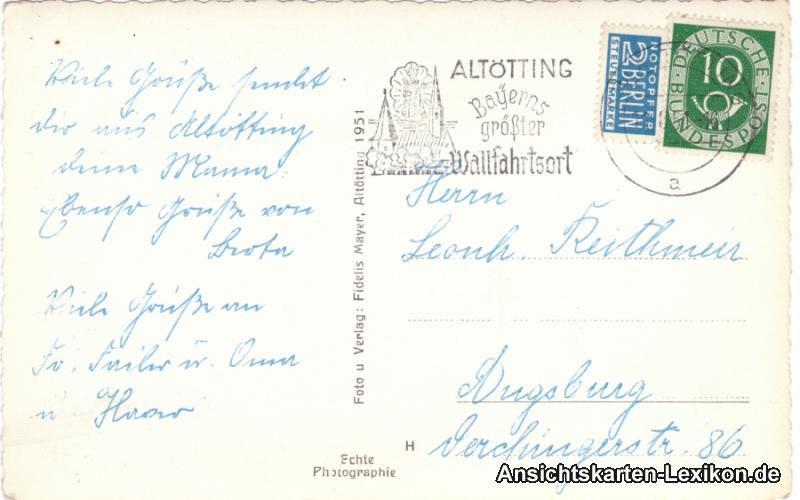 Viele Grüße sendet
dir aus Altötting
deine Mama.
Ebenso Grüße von
Berta
Viele Grüße an
Fr. Sailer u. Oma
u
Foto u Verlag: Fidelis Mayer, Altötting 1951
Echte
Photographie
H
ALTÖTTING
Bayerns
größter
Wallfahrtsort
NOTOPFER
2 BERLIN
STEUERMARKE
DEUTSCHE
10
BUNDESPOST
a
Herrn
Leonh. Reithmeir
Augsburg
Derchingerstr. 86
Ansichtskarten-Lexikon.de